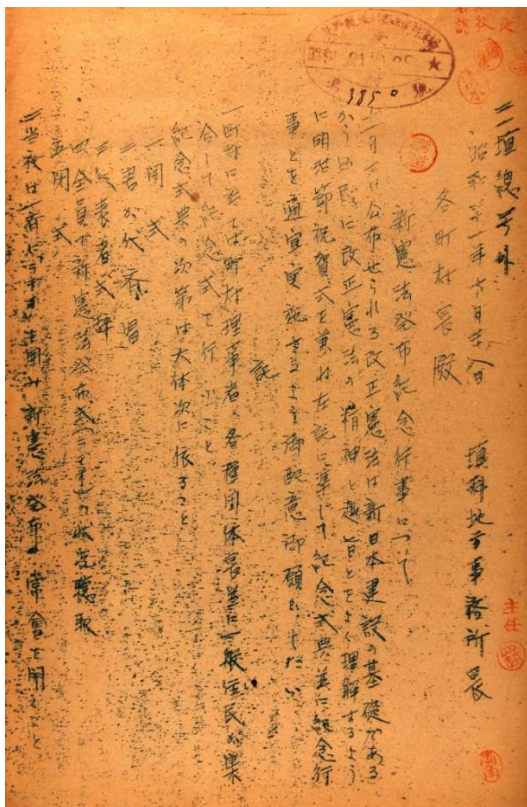 二一埴総号外
昭和二十一年十月廿八日
埴科地方事務所長
各町村長殿
新憲法発布紀念行事について
十一月三日公布せられる改正憲法は新日本建設の基礎である
から国民に改正憲法の精神と趣旨とをよく理解するよう
に明治節祝賀式を兼ね左記に準じて紀念式典並に紀念行
事とを適宜実施せらるよう御配意御願ひしたい
記
一町村に於ては町村理事者、各種団体長並に一般住民が集
合して紀念式を行ふこと
紀念式典の次第は大体次に依ること
一開式
二君が代斉唱
三代表者式辞
四全員で新憲法発布式の状況聴取
五閉式
二当夜は(新)ラヂオを囲み新憲法発布の常会を開くこと
主任
3850